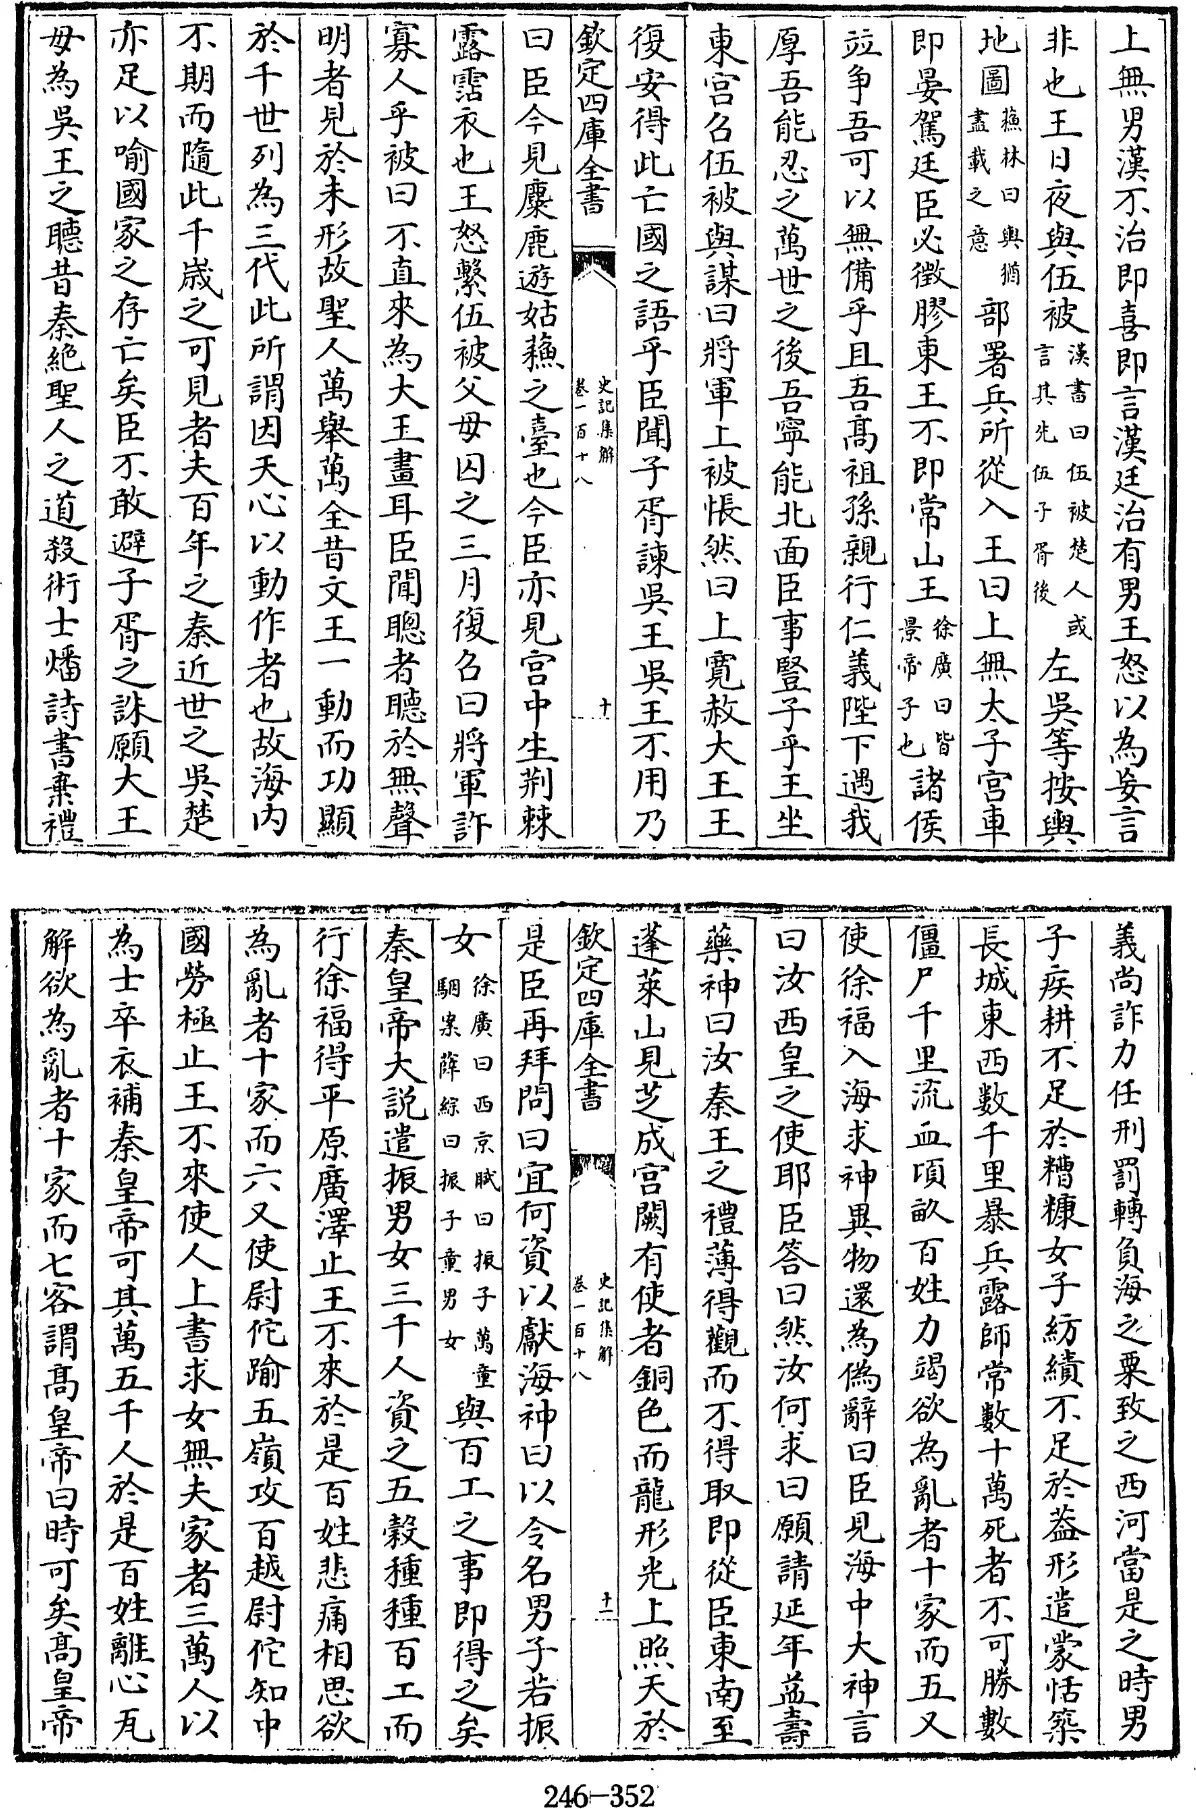 上無男漢不治即喜即言漢廷治有男王怒以為妄言
非也王日夜與伍被漢書曰伍被楚人或言其先伍子胥後左吳等按輿
地圖蘇林曰輿猶盡載之意部署兵所從入王曰上無太子宮車
即晏駕廷臣必徵膠東王不即常山王徐廣曰皆景帝子也諸侯
竝争吾可以無備乎且吾髙祖孫親行仁義陛下遇我
厚吾能忍之萬世之後吾寧能北面臣事豎子乎王坐
東宮召伍被與謀曰將軍上被悵然曰上寛赦大王王
復安得此亡國之語乎臣聞子胥諫吳王吳王不用乃
欽定四庫全書
史記集解
卷一百十八
十
曰臣今見麋鹿遊姑蘓之臺也今臣亦見宮中生荆棘
露霑衣也王怒繫伍被父母囚之三月復召曰將軍許
寡人乎被曰不直來為大王畫耳臣聞聰者聽於無聲
明者見於未形故聖人萬舉萬全昔文王一動而功顯
於千世列為三代此所謂因天心以動作者也故海内
不期而隨此千嵗之可見者夫百年之秦近世之吳楚
亦足以喻國家之存亡矣臣不敢避子胥之誅願大王
毋為吳王之聽昔秦絶聖人之道殺術士燔詩書棄禮
義尚詐力任刑罰轉負海之粟致之西河當是之時男
子疾耕不足於糟糠女子紡績不足於葢形遣蒙恬築
長城東西數千里暴兵露師常數十萬死者不可勝數
僵尸千里流血頃畝百姓力竭欲為亂者十家而五又
使徐福入海求神異物還為偽辭曰臣見海中大神言
曰汝西皇之使耶臣答曰然汝何求曰願請延年益壽
藥神曰汝秦王之禮薄得觀而不得取即從臣東南至
蓬萊山見芝成宮闕有使者銅色而龍形光上照天於
欽定四庫全書
史記集解
卷一百十八
十一
是臣再拜問曰宜何資以獻海神曰以令名男子若振
女徐廣曰西京賦曰振子萬童駰案薛綜曰振子童男女與百工之事即得之矣
秦皇帝大説遣振男女三千人資之五榖種種百工而
行徐福得平原廣澤止王不來於是百姓悲痛相思欲
為亂者十家而六又使尉佗踰五嶺攻百越尉佗知中
國勞極止王不來使人上書求女無夫家者三萬人以
為士卒衣補秦皇帝可其萬五千人於是百姓離心瓦
解欲為亂者十家而七客謂髙皇帝曰時可矣髙皇帝
246-352